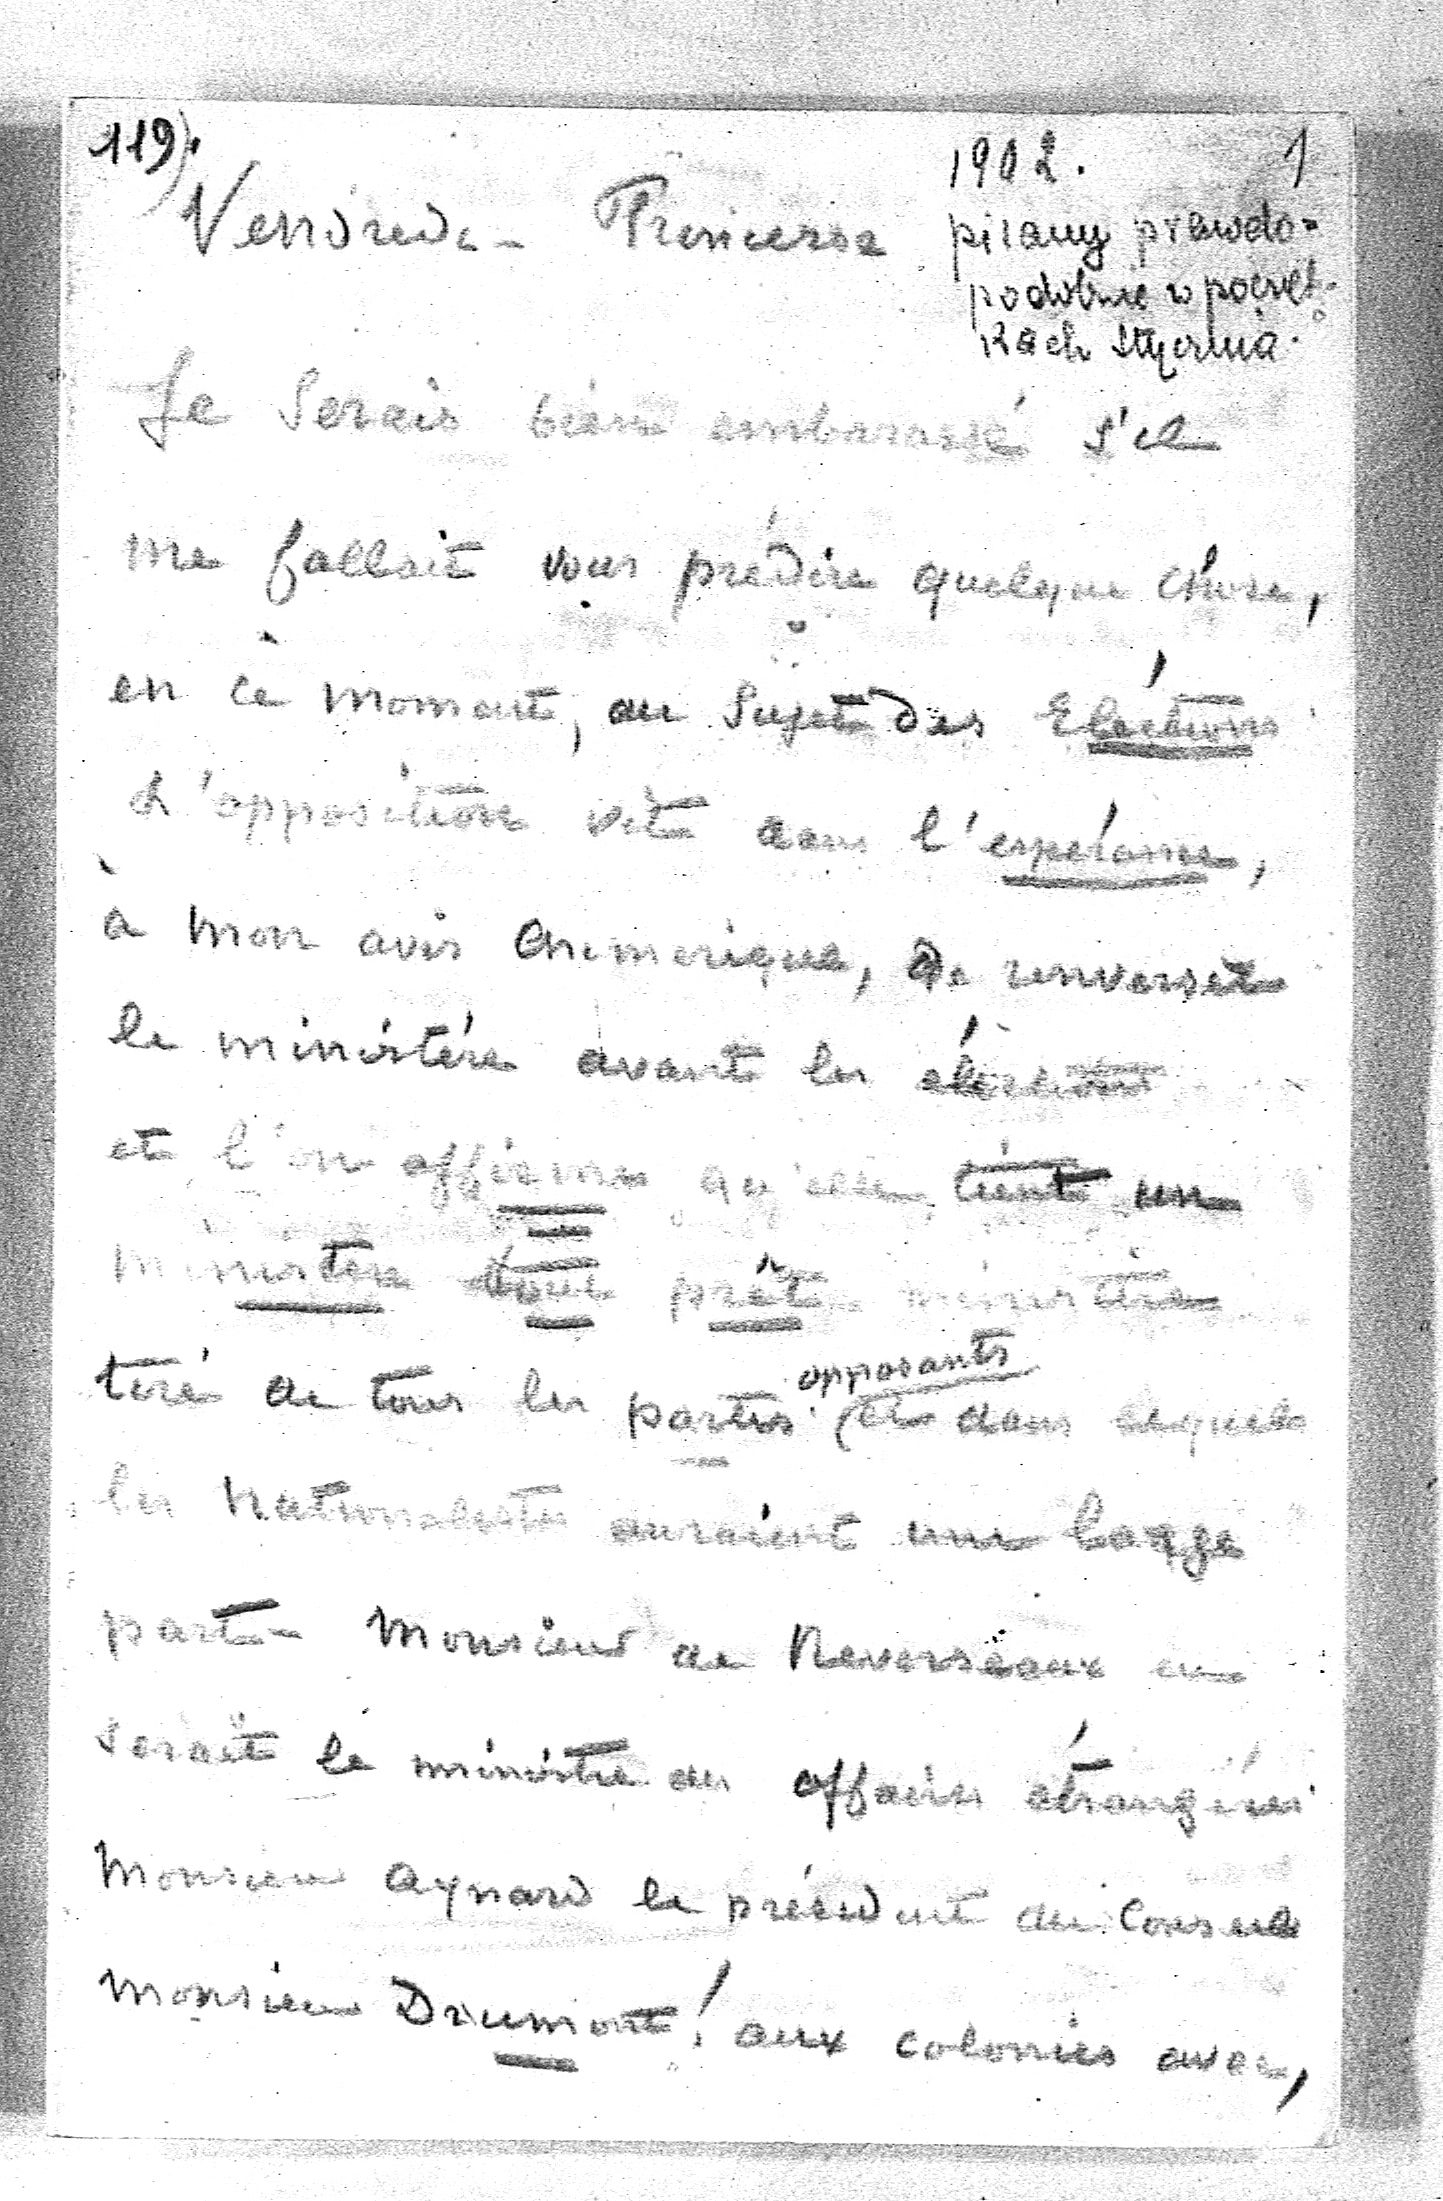 119).
1902. 1
pisany prawdo=
podobnie w począt-
kach stycznia.
Vendredi - Princesse
Je serais bien embarassé s'il
me fallait vous prédire quelque chose,
en ce moment, au sujet des Eléctions
L'opposition vit dans l'espérance,
à mon avis chimerique, de renverser
le ministére avant les éléctions
et l'on affirme qu'elle tient un
ministére tout prêt ministére
tiré de tous les partis opposants
(et dans lequel
les Nationalistes auraient une large
part - Monsieur de Reverseaux en
serait le ministre des affaires étrangéres
Monsieur Aynard le président du Conseil
Monsieur Drumont! aux colonies avec,